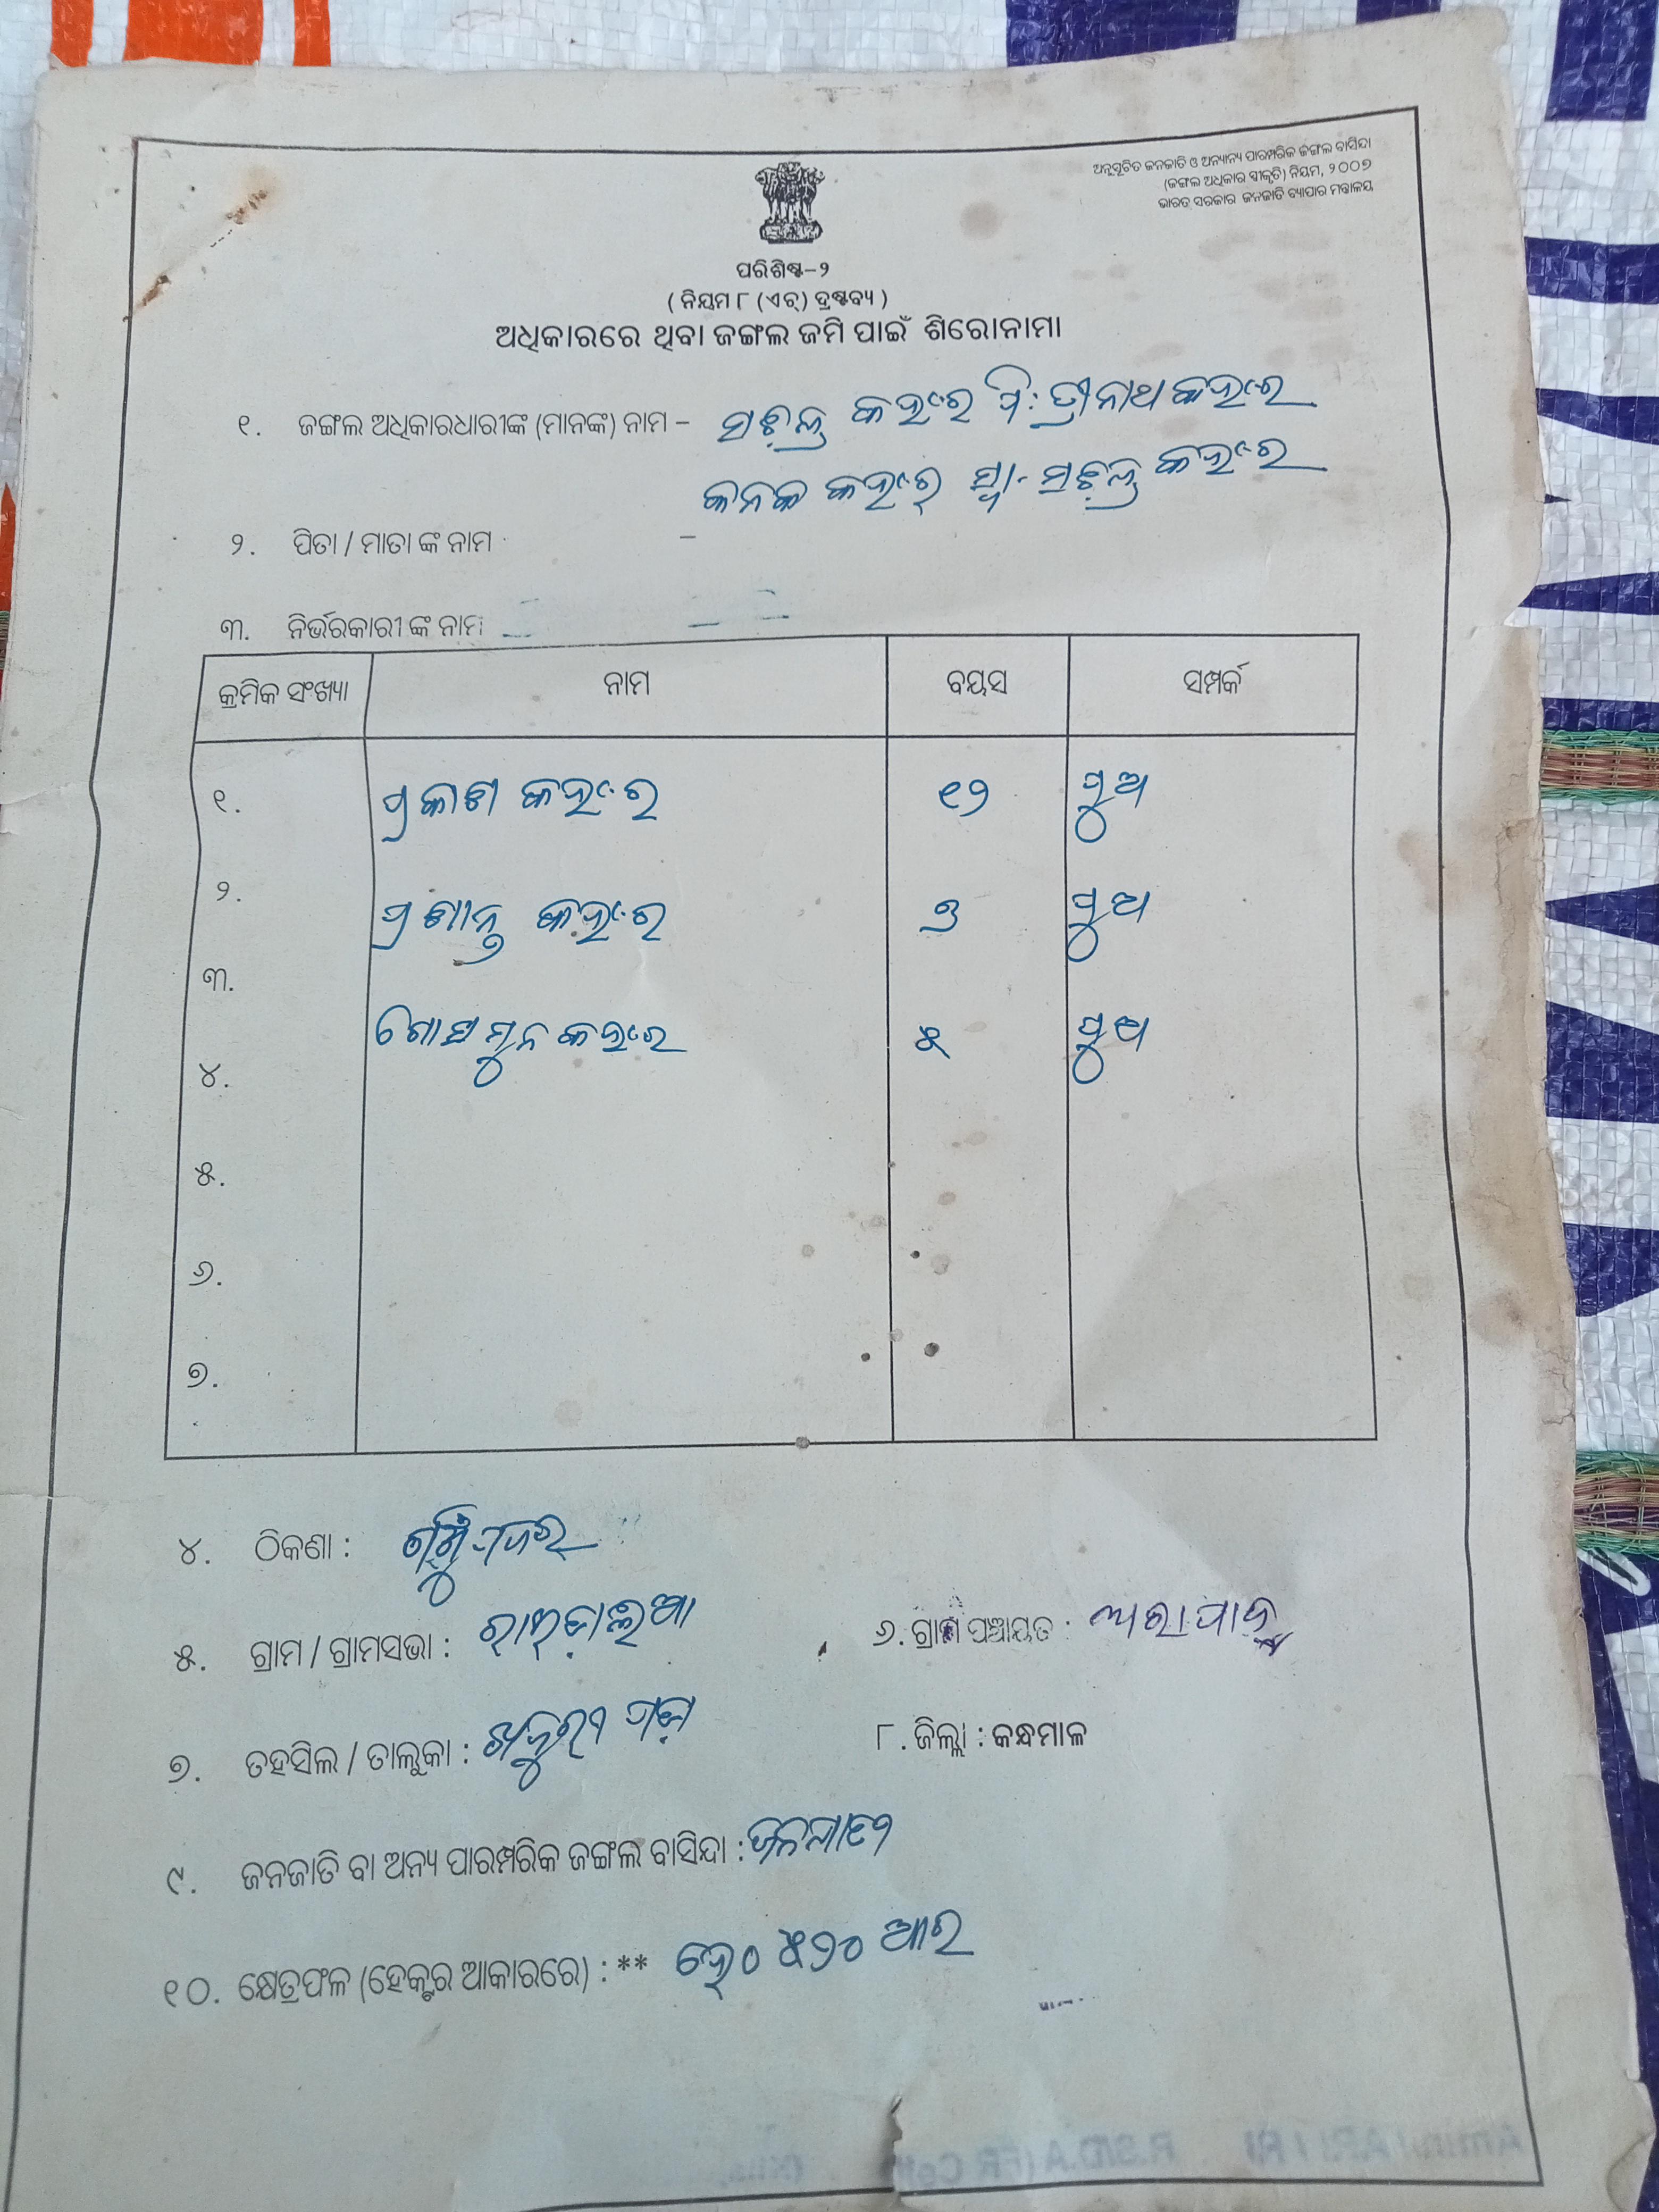 ଅନୁସୂଚିତ ଜନଜାତି ଓ ଅନ୍ୟାନ୍ୟ ପାରମ୍ପରିକ ଜଙ୍ଗଲ ବାସିନ୍ଦା
(ଜଙ୍ଗଲ ଅଧିକାର ସ୍ୱୀକୃତି) ନିୟମ, ୨୦୦୭
ଭାରତ ସରକାର ଜନଜାତି ବ୍ୟାପାର ମନ୍ତ୍ରାଳୟ
ପରିଶିଷ୍ଟ-୨
( ନିୟମ ୮ (ଏଚ୍) ଦ୍ରଷ୍ଟବ୍ୟ )
ଅଧିକାରରେ ଥିବା ଜଙ୍ଗଲ ଜମି ପାଇଁ ଶିରୋନାମା
୧. ଜଙ୍ଗଲ ଅଧିକାରଧାରୀଙ୍କ (ମାନଙ୍କ) ନାମ -
କନକ କହଁର
୨. ପିତା / ମାତା ଙ୍କ ନାମ -
୩. ନିର୍ଭରକାରୀ ଙ୍କ ନାମ
କ୍ରମିକ ସଂଖ୍ୟା ନାମ ବୟସ ସମ୍ପର୍କ
୧. ପ୍ରକାଶ କହଁର ୧୨ ପୁଅ
୨. ପ୍ରଶାନ୍ତ କହଁର ପୁଅ
୩.
କହଁର ୫ ପୁଅ
୪.
୫.
୬.
୭.
୪. ଠିକଣା :
୫. ଗ୍ରାମ / ଗ୍ରାମସଭା : ୬. ଗ୍ରାମ ପଞ୍ଚାୟତ :
୭. ତହସିଲ / ତାଲୁକା : ଖଜୁରୀ ପଡ଼ା ୮. ଜିଲ୍ଲା : କନ୍ଧମାଳ
୯. ଜନଜାତି ବା ଅନ୍ୟ ପାରମ୍ପରିକ ଜଙ୍ଗଲ ବାସିନ୍ଦା : ଜନଜାତି
୧୦. କ୍ଷେତ୍ରଫଳ (ହେକ୍ଟର ଆକାରରେ) : ** ହେ୦ ୫୨୦ ଆର